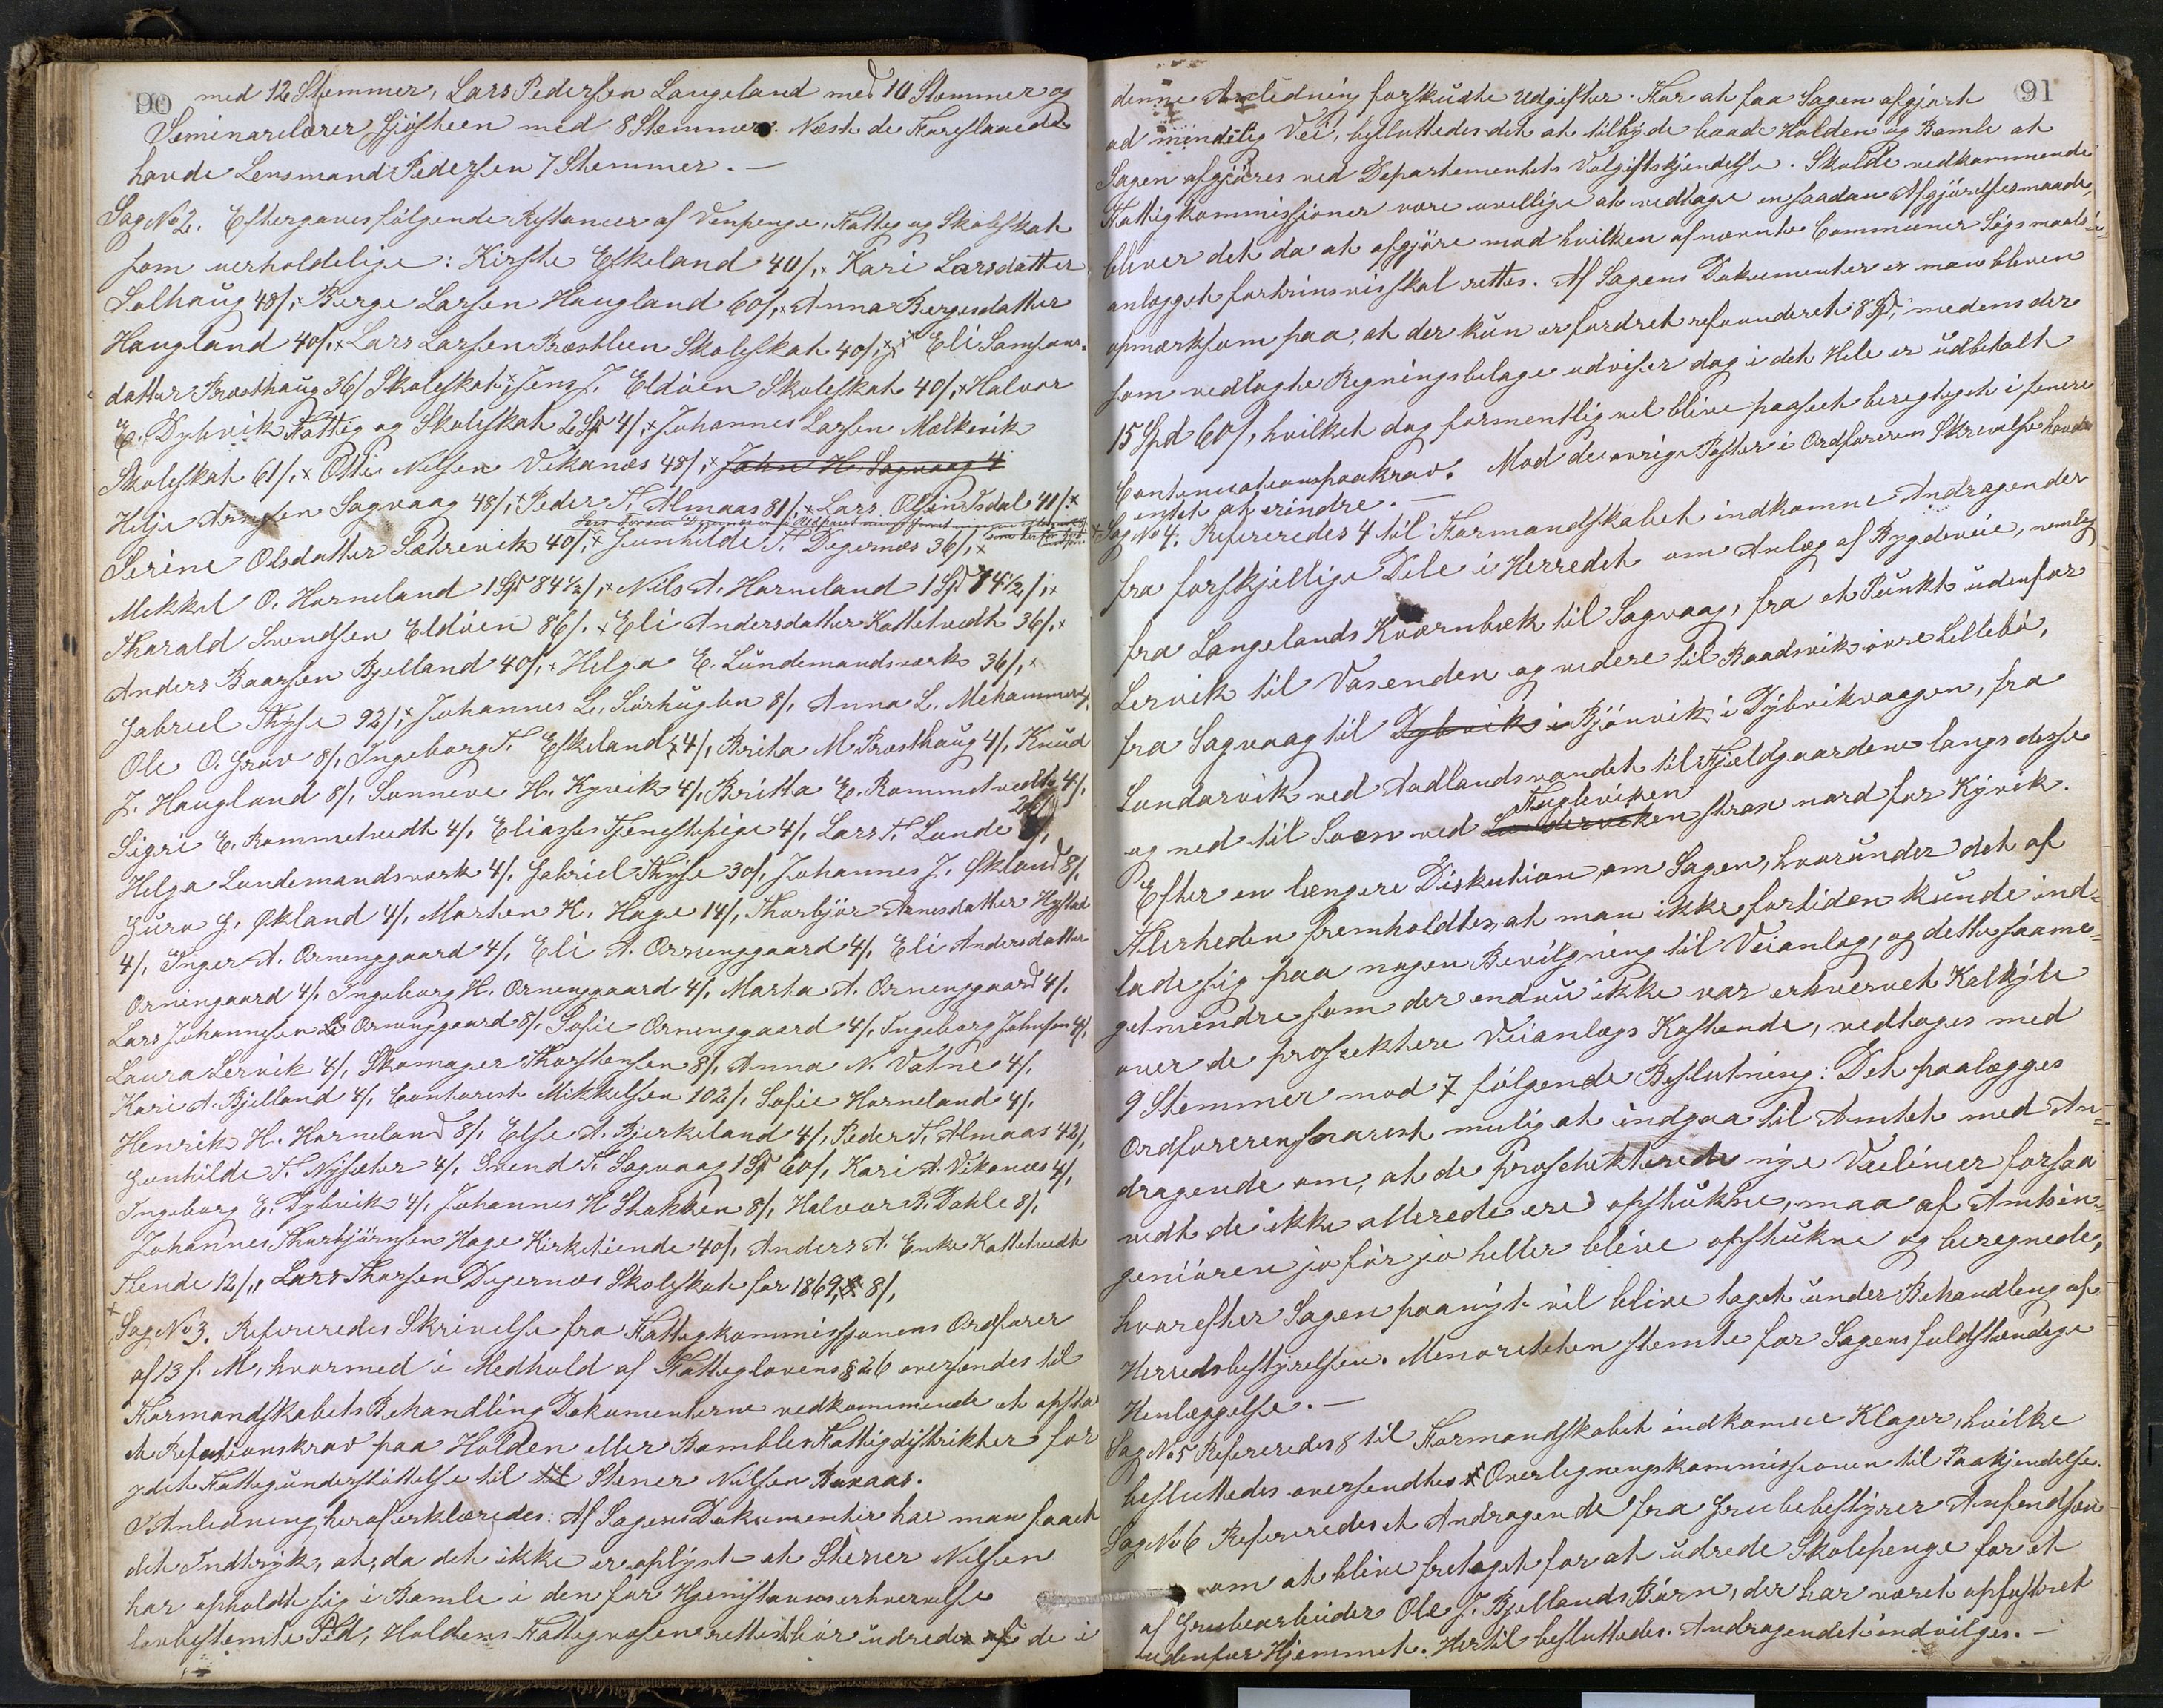 90
med 12 Stemmer, Lars Pedersen Langeland med 10 Stemmer og
Seminarelærer Gjösteen med 8 Stemmer. Næst de Foreslaaede
havde Lensmand Pedersen 7 Stemmer. —
Sag No 2. Eftergaves fölgende Restancer af Venpenge, Fattig og Skoleskat
som uerholdelige: Kirsti Eskeland 40/, x Kari Larsdatter
Solhaug 48/, x Berge Larsen Haugland 60/, x Anna Bergesdatter
Haugland 40/, x Lars Larsen Præstlien Skoleskat 40/, x Eli Samsons-
datter Bræsthaug 36/ Skoleskat, x Jens J. Eldöen Skoleskat 40/, x Halvor
E. Dybvik Fattig og Skoleskat 2 Spd 4/, x Johannes Larsen Melkevik
Skoleskat 61/, x Otti Nilsen Vikanæs 48/, x John H. Sagvaag 4
Helje Arnesen Sagvaag 48/, x Peder T. Almaas 81/, x Lars Olsen Isdal 41/. x
Serine Olsdatter Sætrevik 40/, x Gunhilde T. Degernæs 36/, x
Mekkel O. Horneland 1 Spd 84 1/2/, x Nils A. Horneland 1 Spd 74 1/2/, x
Tharald Svendsen Eldöen 86/. x Eli Andersdatter Kattetvedt 36/. x
Anders Baarsen Bjelland 40/, x Helga E. Lundemandsværk 36/, x
Gabriel Thyse 92/, x Johannes L. Sörhuglen 8/, Anna L. Mehammer 4/,
Ole O. Grov 8/, Ingeborg T. Eskeland 4/, Brita M. Bræsthaug 4/, Knud
J. Haugland 8/, Sunneve H. Kyvik 4/, Britta E. Rommetvedt 4/,
Sigri E. Rommetvedt 4/, Eliasses Tjenestepige 4/, Lars T. Lunde
Helga Lundemandsværk 4/, Gabriel Thyse 30/, Johannes J. Økland 8/,
Guro J. Økland 4/, Morten K. Hage 14/, Thorbjör Arnesdatter Hystad
4/, Inger A. Orninggaard 4/, Eli A. Orninggaard 4/, Eli Andersdatter
Orningaard 4/, Ingeborg H. Orninggaard 4/, Marta A. Orninggaard 4/,
Lars Johannesen Orninggaard 8/, Sofie Orninggaard 4/, Ingeborg Johnsen 4/,
Laura Lervik 4/, Skomager Thorstensen 8/, Anna N. Vatne 4/,
Kari A. Bjelland 4/, Contorist Mikkelsen 102/, Sofie Horneland 4/,
Henrik H. Horneland 8/, Else A. Bjerkeland 4/, Peder T. Almaas 42/,
Gunhilde T. Nysæter 4/, Svend T. Sagvaag 1 Spd 60/, Kari A. Vikanæs 4/,
Ingeborg E. Dybvik 4/, Johannes H Stokken 8/, Halvor B. Dahle 8/,
Johannes Thorbjörnsen Hage Kirketiende 40/, Anders A. Enke Kattetvedt
Tiende 12/, Lars Thorsen Degernæs Skoleskat for 1869, 8/,
x Sag No 3. Refereredes Skrivelse fra Fattigkommissjonens Ordförer
af 13 f. M, hvormed i Medhold af Fattiglovens § 26 oversendes til
Formandskabets Behandling Dokumenterne vedkommende et opstaa
et Refusionskrav paa Holden eller Bambles Fattigdistrikter for
ydet Fattigunderstöttelse til til Stener Nilsen Buxaas.
I Anledning heraf erklæredes: Af Sagens Dokumenter har man faaet
det Indtryk, at, da det ikke er oplyst at Stener Nilsen
har opholdt sig i Bamle i den for Hjemstavnserhvervelse
lovbestemte Tid, Holdens Fattigvæsen rettest bör udrede de i
91
denne Anledning forskudte Udgifter. For at faa Sagen afgjort
ad mindelig Vei, besluttedes det at tilbyde baade Holden og Bamle at
Sagen afgjöres ved Departementets Voldgiftskjendelse. Skulde vedkommende
Fattigkommissjoner være uvillige at vedtage en saadan Afgjörelsesmaade,
bliver det da at afgjöre mod hvilken af nævnte Communer Sögsmaals-
anlægget fortrinsvis skal rettes. Af Sagens Dokumenter er man bleven
opmærksom paa, at der kun er fordret refunderet 8 Spd, medens der
som vedlagte Regningsbelage udviser dog i det Hele er udbetalt
15 Spd 60/, hvilket dog formentlig vil blive paaseet beregtiget i senere
Contenuationspaakrav. Mod de övrige Poster i Ordförerens Skrivelse havdes
intet at erindre. —
x Sag No 4. Refereredes 4 til Formandskabet indkomne Andragender
fra forskjellige Dele i Herredet om Anlæg af Bygdeveie, nemlig
fra Langelands Kværnbæk til Sagvaag, fra et Punkt udenfor
Lervik til Vasenden og videre til Baadsvik övre Lillebö,
fra Sagvaag til Dybvik i Björnvik i Dybvikvaagen, fra
Sondorvik ved Aadlandsvandet til Fjeldgaardene langs desse
og ned til Söen ved Fugleviken strax nord for Kyvik.
Efter en længere Diskution om Sagen, hvorunder det af
Flerheden fremholdtes, at man ikke fortiden kunde ind-
lade sig paa nogen Bevilgning til Veianlæg, og dette saame-
get mindre som der endnu ikke var erhvervet Kalkyle
over de projekterte Veianlægs Kostende, vedtoges med
9 Stemmer mod 7 fölgende Beslutning: Det paalægges
Ordföreren snarest mulig at indgaa til Amtet med An-
dragende om, at de projekterede nye Veilinier forsaa-
vidt de ikke allerede ere opstukne, maa af Amtsin-
geniören jo för jo heller blive opstukne og beregnede,
hvorefter Sagen paanyt vil blive taget under Behandling af
Herredsbestyrelsen. Menoriteten stemte for Sagens fuldstændige
Henlæggelse. —
Sag No 5 Refereredes 8 til Formandskabet indkomne Klager, hvilke
besluttedes oversendtes Overligningskommissionen til Paakjendelse.
Sag No 6 Refereredes et Andragende fra Grubebestyrer Anfendsen
om at blive fretaget for at udrede Skolepenge for et
af Grubearbeider Ole J. Bjellands Börn, der har været opfostret
udenfor Hjemmet. Hertil besluttedes. Andragendet indvilges. —